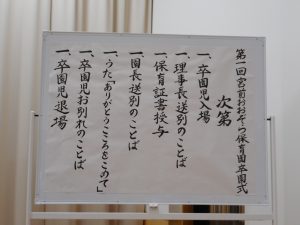 第一回宮前おおぞら保育園卒園式
次第
一、卒園児入場
一、理事長送別のことば
一、保育証書授与
一、園長送別のことば
一、うた「ありがとうこころをこめて」
一、卒園児お別れのことば
一、卒園児退場